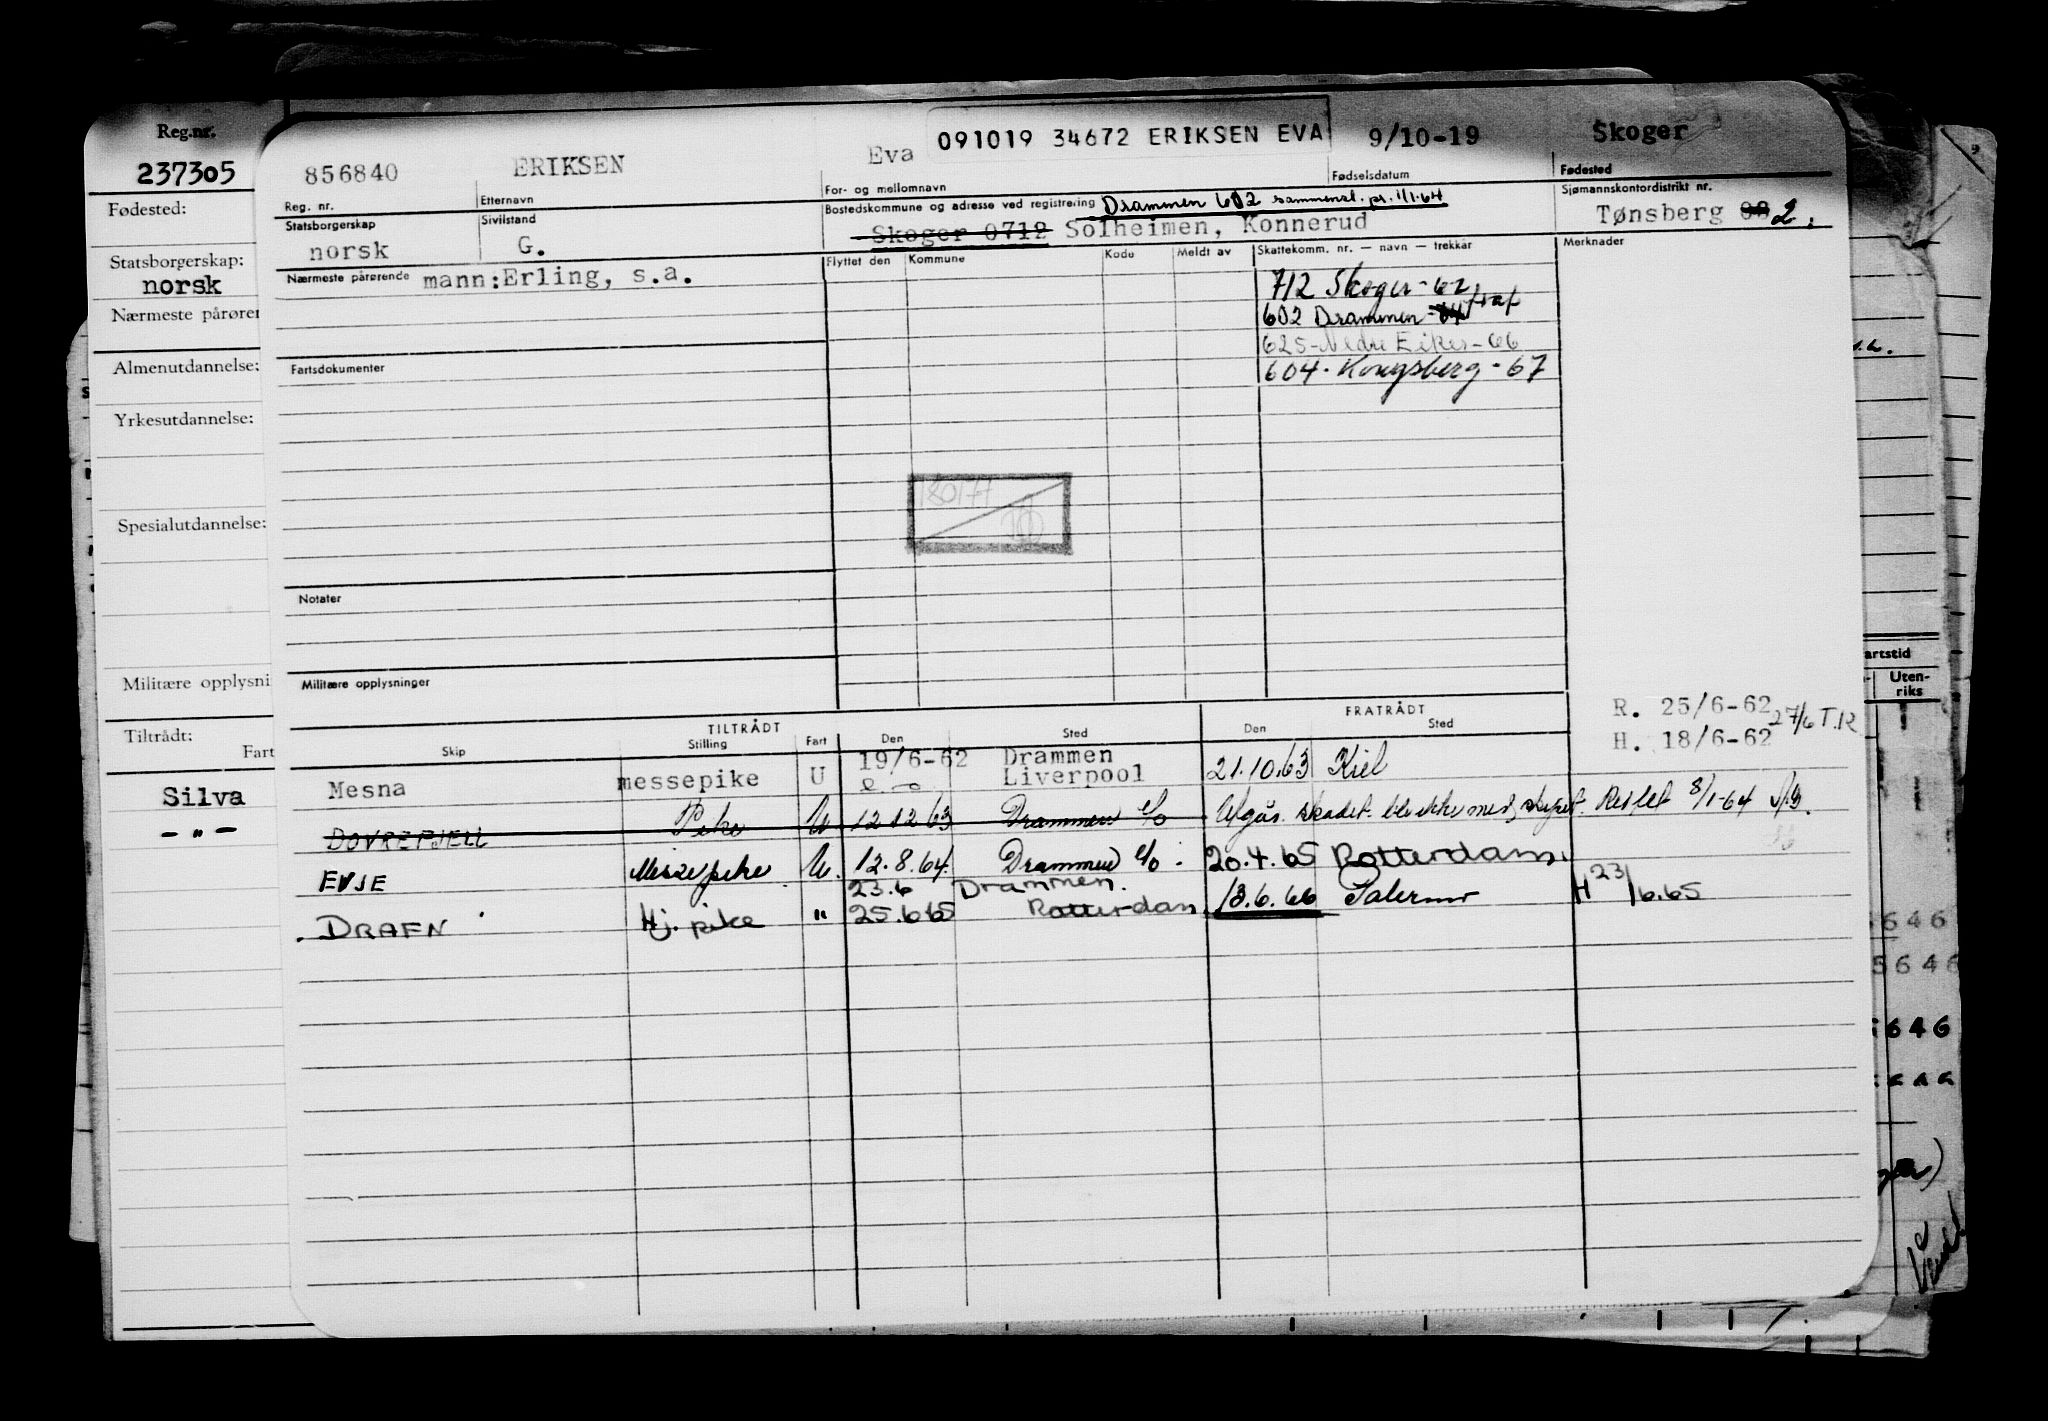 Reg.nr.
237305
Fødested:
Statsborgerskap:
norsk
Nærmeste pårøren
Almenutdannelse:
Yrkesutdannelse:
Spesialutdannelse:
Militære opplysni
Tiltrådt:
Fart
Silva
— " —
856840 ERIKSEN Eva 091019 34672 ERIKSEN EVA 9/10-19 Skoger
Reg. nr. Etternavn For- og mellomnavn Fødselsdatum Fødested
Statsborgerskap Sivilstand Bostedskommune og adresse ved registrering Drammen 602 sammensl. pr. 1/1-64 Sjømannskontordistrikt nr.
norsk G. Skoger 0712 Solheimen, Konnerud Tønsberg 2.
Nærmeste pårørende mann:Erling, s.a. Flyttet den Kommune Kode Meldt av Skattekomm. nr. — navn — trekkår Merknader
712 Skoger-62
602 Drammen-64
625-Nedre Eiker-66
Fartsdokumenter 604-Kongsberg-67
Notater
Militære opplysninger
TILTRÅDT FRATRÅDT
Skip Stilling Fart Den Sted Den Sted
R. 25/6-62
H. 18/6-62 27/6 T.R
Mesna messepike U 19/6-62 Drammen
Liverpool 21.10.63 Kiel
DOVREFJELL Pike U 12.12.63 Drammen e/o Avgår. skadet. ble ikke med skipet. Rettet 8/1-64
EVJE Messepike U. 12.8.64 Drammen e/o. 20.4.65 Rotterdam.
23.6 Drammen.
DRAFN Hj. pike " 25.6.65 Rotterdam 13.6.66 Palermo H 23/6.65
artstid
Uten-
riks
646
5646
646